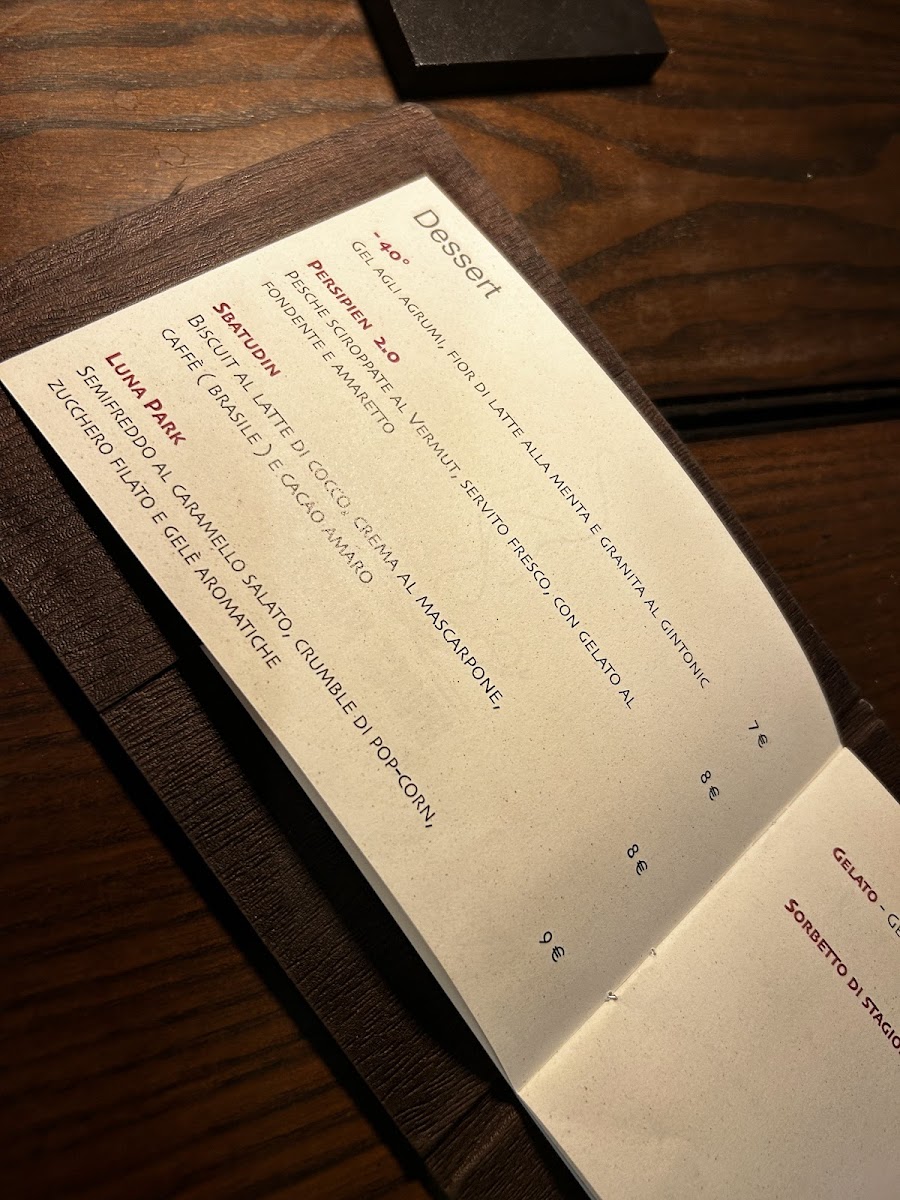 Dessert
- 40°
GEL AGLI AGRUMI, FIOR DI LATTE ALLA MENTA E GRANITA AL GINTONIC 7 €
PERSIPIEN 2.0
PESCHE SCIROPPATE AL VERMUT, SERVITO FRESCO, CON GELATO AL 8 €
FONDENTE E AMARETTO
SBATUDIN
BISCUIT AL LATTE DI COCCO, CREMA AL MASCARPONE, 8 €
CAFFÈ ( BRASILE ) E CACAO AMARO
LUNA PARK
SEMIFREDDO AL CARAMELLO SALATO, CRUMBLE DI POP-CORN, 9 €
ZUCCHERO FILATO E GELÈ AROMATICHE
GELATO -
SORBETTO DI